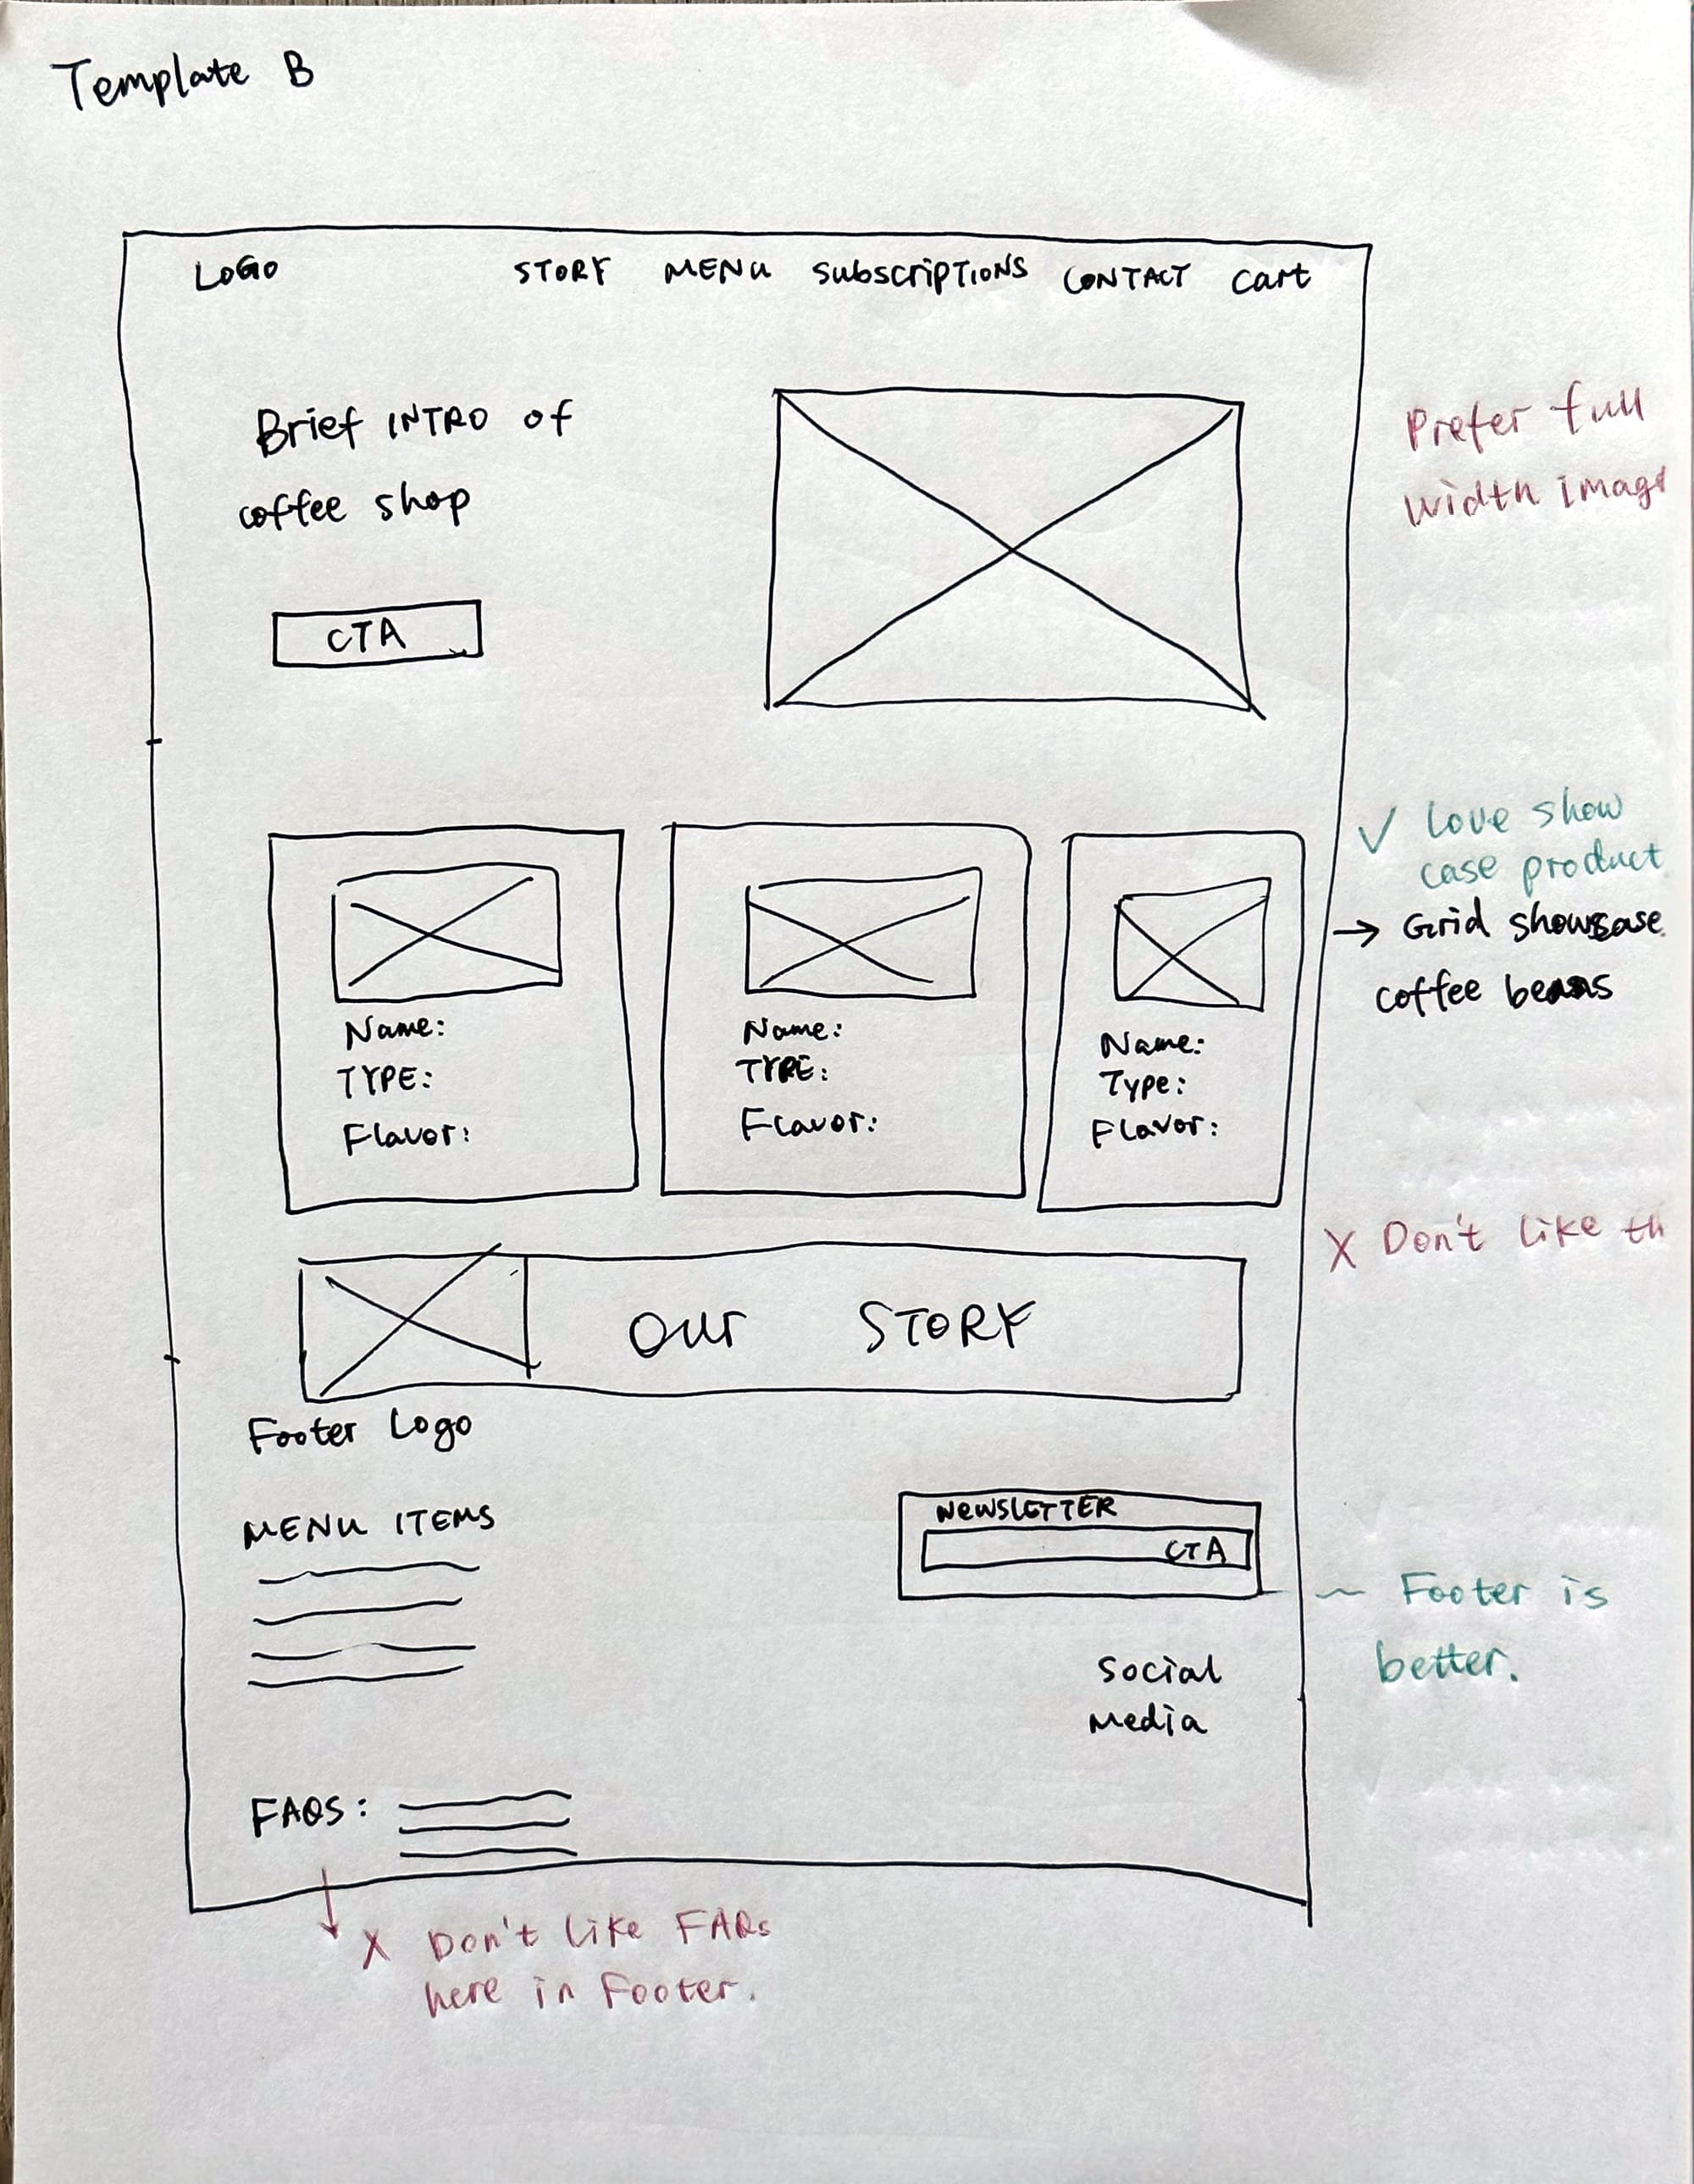 Template B
LOGO STORY MENU SubscripTIONS CONTACT Cart
Brief INTRO of
coffee shop
CTA
Prefer full
width Image
✓ Love show
case product
→ Grid showcase
coffee beans
Name:
TYPE:
Flavor:
Name:
TYPE:
Flavor:
Name:
Type:
Flavor:
X Don't like th
Our STORY
Footer Logo
MENU ITEMS
NEWSLETTER
CTA
~ Footer is
better.
Social
Media
FAQS:
X Don't like FAQs
here in Footer.